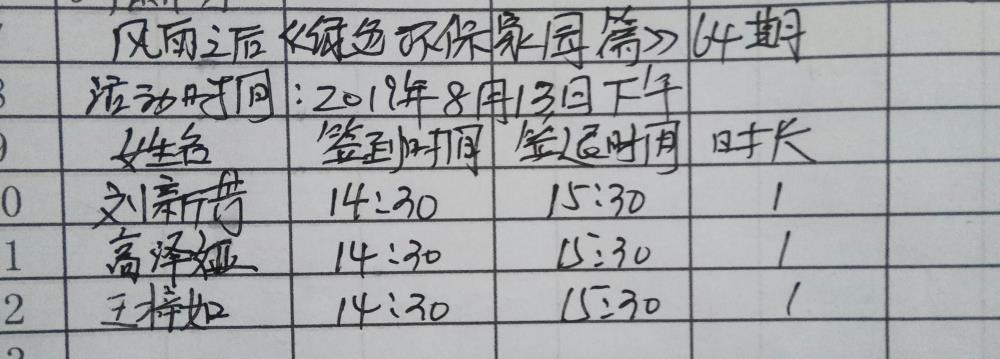 风雨之后《绿色环保家园篇》64期
活动时间：2019年8月13日下午
9 姓名 签到时间 签退时间 时长
0 刘新 14:30 15:30 1
1 高泽娅 14:30 15:30 1
2 王梓如 14:30 15:30 1